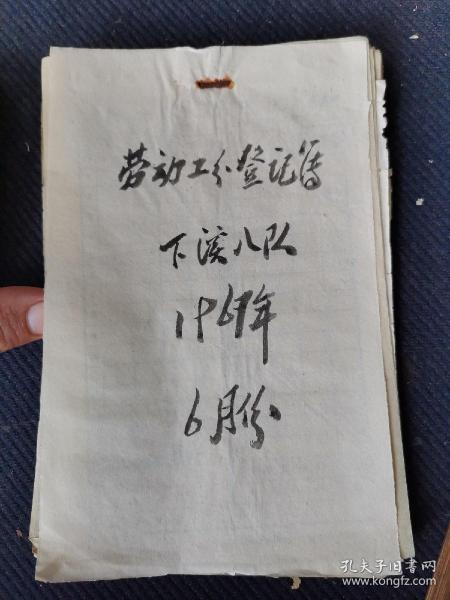 劳动工分登记簿
下溪八队
1969年
6月份
孔夫子旧书网
www.kongfz.com